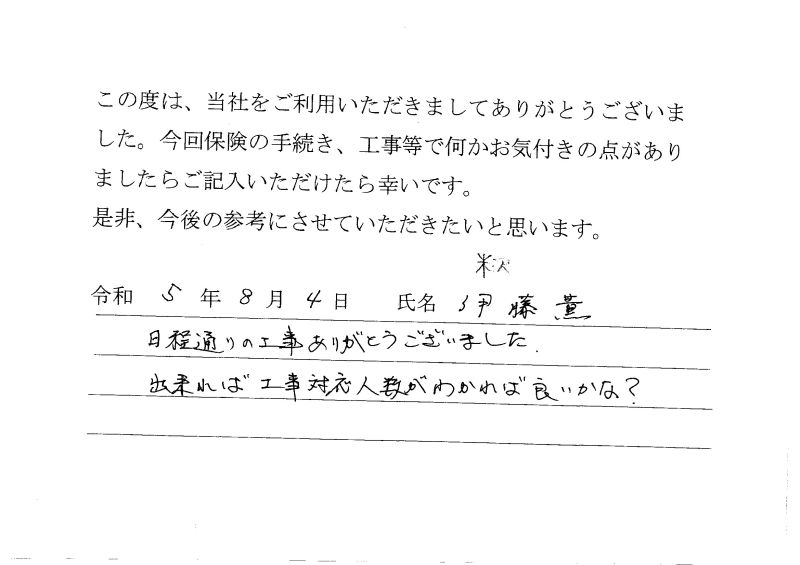 この度は、当社をご利用いただきましてありがとうございま
した。今回保険の手続き、工事等で何かお気付きの点があり
ましたらご記入いただけたら幸いです。
是非、今後の参考にさせていただきたいと思います。
米沢
令和 5 年 8 月 4 日 氏名 伊藤 薫
日程通りの工事ありがとうございました.
出来れば工事対応人数がわかれば良いかな?